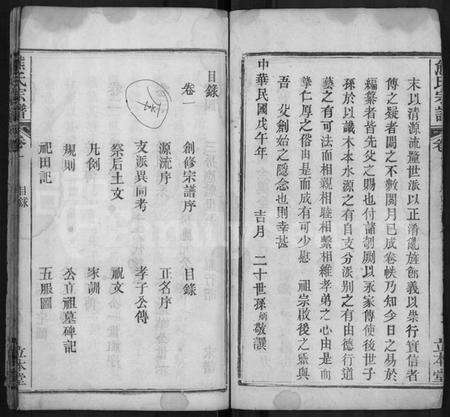 熊氏宗譜
卷
立本堂
末以清源流鑿世派以正淆亂旌餙義以崇行實信者
傳之疑者闕之不數閱月已成卷帙乃知今日之易於
編纂者皆先父之賜也付諸剞劂以永家傳使後世子
孫於以識木本水源之有自支分派別之有由德行道
藝之有可法而相親相睦相繫相維孝弟之心由是而
篤仁厚之俗由是而成有可少慰 祖宗啟後之靈與
吾 父創始之隱念也則幸甚
中華民國戊午年 吉月 二十世孫 敬譔
目錄
卷一 創修宗譜序 目錄
源流序 正名序
支派異同考 孝子公傳
祭后土文 祝文
凡例 家訓
規則 公立祖墓碑記
祀田記 五服圖
熊氏宗譜
卷一
目錄
立本堂